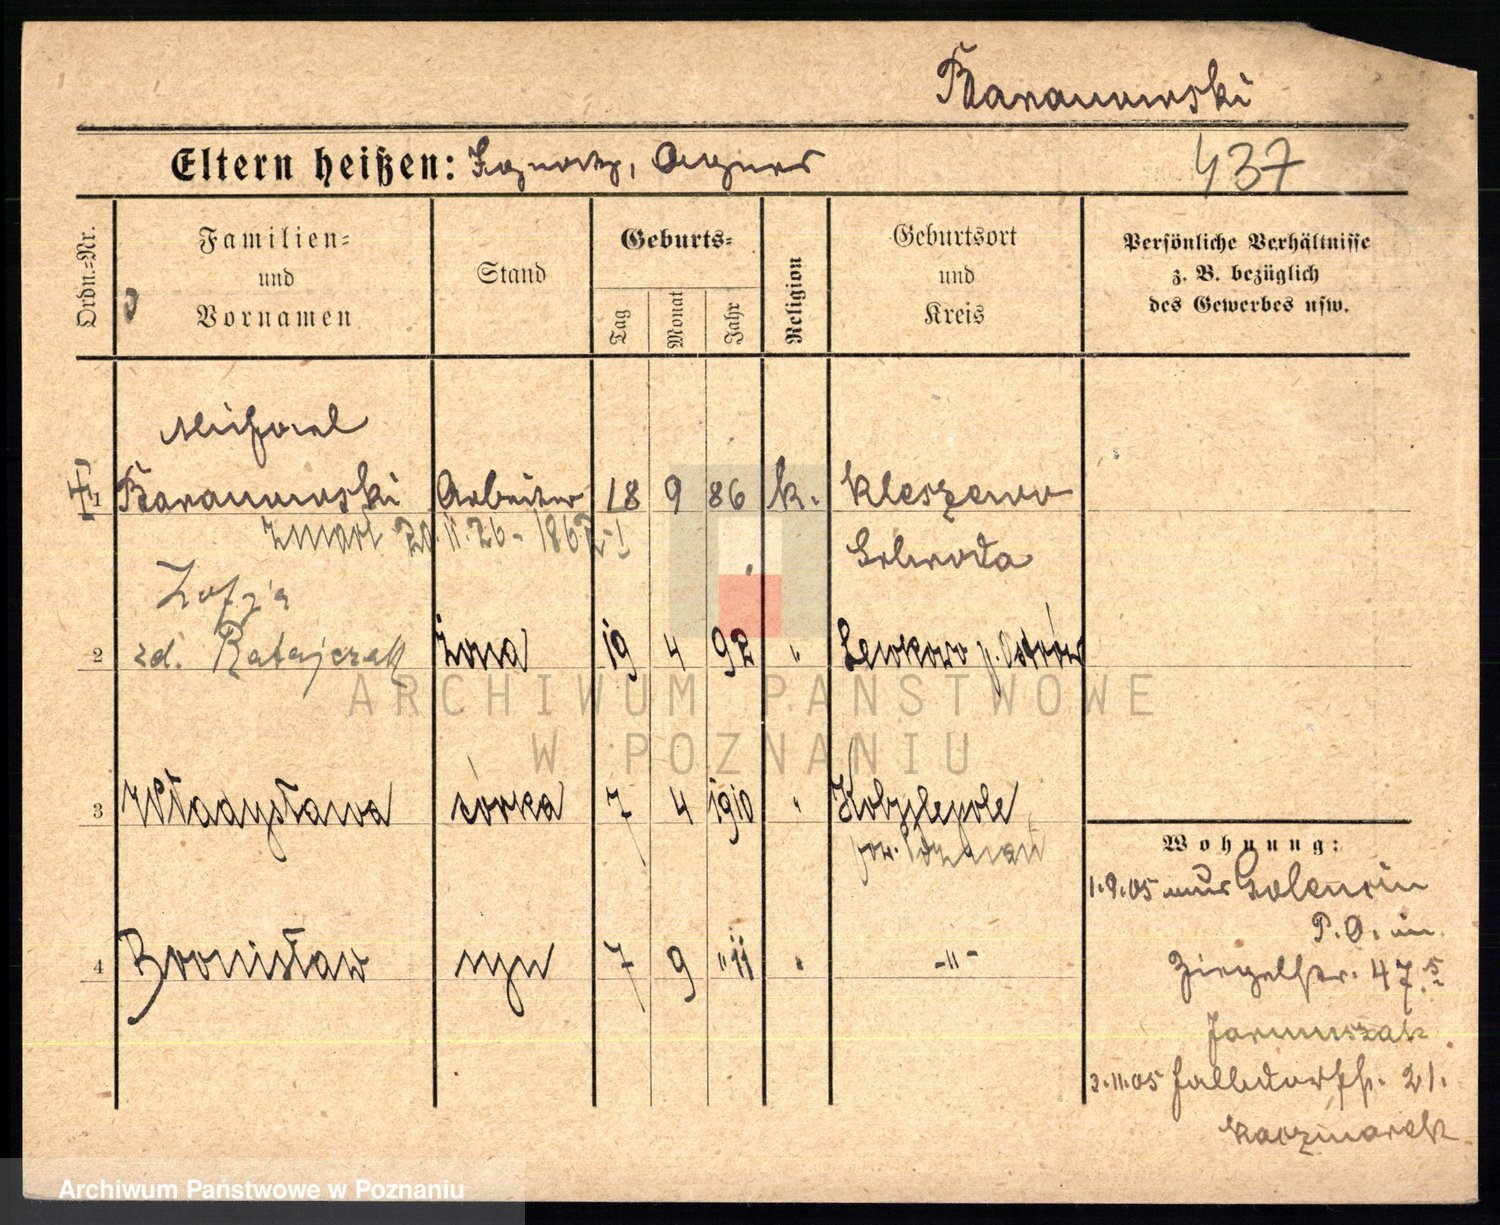 Baranowski
Eltern heißen: Ignatz, Agnes
437
Ordn.=Nr.
Familien=
und
Vornamen
Stand
Geburts=
Tag
Monat
Jahr
Religion
Geburtsort
und
Kreis
Persönliche Verhältnisse
z. B. bezüglich
des Gewerbes usw.
Michael
1 Baranowski Arbeiter 18 9 86 k. Kleszewo
Zmarł 20.11.26 - 1862-I
Schroda
Zofja
2 zd. Ratajczak żona 19 4 92 " Lewkowo p. Ostrów
ARCHIWUM PAŃSTWOWE
W POZNANIU
3 Władysława córka 7 4 1910 " Kobylepole
pow. Poznań
4 Bronisław syn 7 9 "11 " -"-
Wohnung:
1.9.05 aus Golencin
P. O. in
Ziegelstr. 47.
Jarmuszak
2.11.05 21.
Kaczmarek
Archiwum Państwowe w Poznaniu